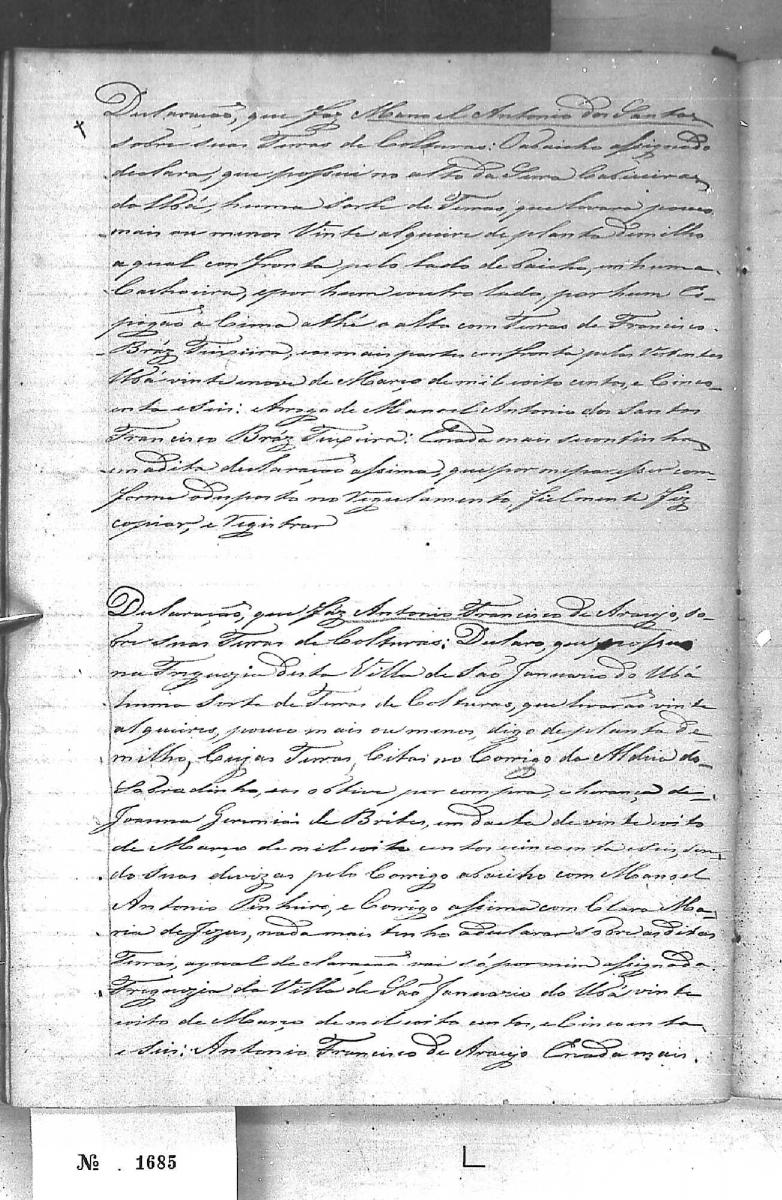 Declaração, que faz Manoel Antonio dos Santos
sobre suas Terras de Colturas: O abaicho assignado
declara, que possui no alto da Serra Cabiceiras
do Ubá, huma Sorte de Terras, que levará pouco
mais ou menos Vinte alqueire de planta de milho
a qual confronta pelo lado de baicho, em huma
Cachoeira, e por hum e outro lado, por hum Es-
pigão a Cima athé o alto com Terras de Francisco
Bráz Teixeira, e as mais partes confronta pelas Vertentes
Ubá vinte e nove de Março de mil e oito centos, e Cinco-
enta e seis: Arrogo de Manoel Antonio dos Santos
Francisco Bráz Teixeira: E nada mais se continha
em a dita declaração assima, que por me paresser com-
forme o desposto no Regulamento, fielmente fiz
copiar, e registrar
Declaração, que faz Antonio Francisco de Araujo, so-
bre suas Terras de Colturas: Declaro, que possuo
na Freguezia desta Villa de São Januario do Ubá
huma Sorte de Terras de Colturas, que levarão vinte
alqueires, pouco mais ou menos, digo de planta de
milho, Cujas Terras, Citas no Corrigo da Aldeia do
Sobradinho, e as obtive por compra, e herança de
Joanna Geremias de Brites, em dacta de vinte e oito
de Março de mil e oito centos e cincoenta e seis, sen-
do suas devizas pelo Corrigo abaicho com Manoel
Antonio Pinheiro, e Corrigo assima com Clara Ma-
ria de Jezus, nada mais tenho a declarar sobre as ditas
Terras, a qual declaração vai só por mim assignada.
Freguezia da Villa de São Januario do Ubá vinte
oito de Março de mil e oito centos, e Cincoenta
e seis: Antonio Francisco de Araujo E nada mais.
Nº 1685